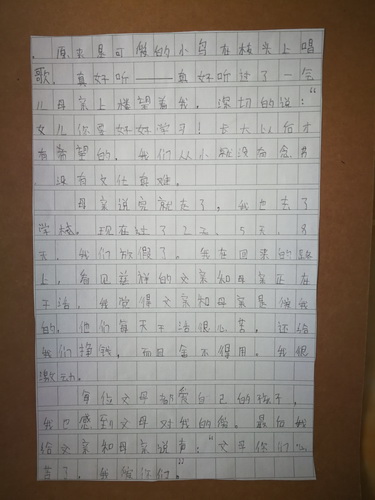 ，原来是可爱的小鸟在枝头上唱
歌。真好听——真好听过了一会
儿母亲上楼望着我。深切的说：“
女儿你要好好学习！长大以后才
有希望的。我们从小就没有念书
没有文化真难。
母亲说完就走了。我也去了
学校。现在过了2天、5天、8
天，我们放假了。我在回来的路
上，看见慈祥的父亲和母亲正在
干活，我觉得父亲和母亲是爱我
的，他们每天干活很心苦。还给
我们挣钱。而且舍不得用。我很
激动。
每位父母都爱自己的孩子，
我也感到父母对我的爱。最后我
给父亲和母亲说声：“父母你们
苦了，我爱你们。”